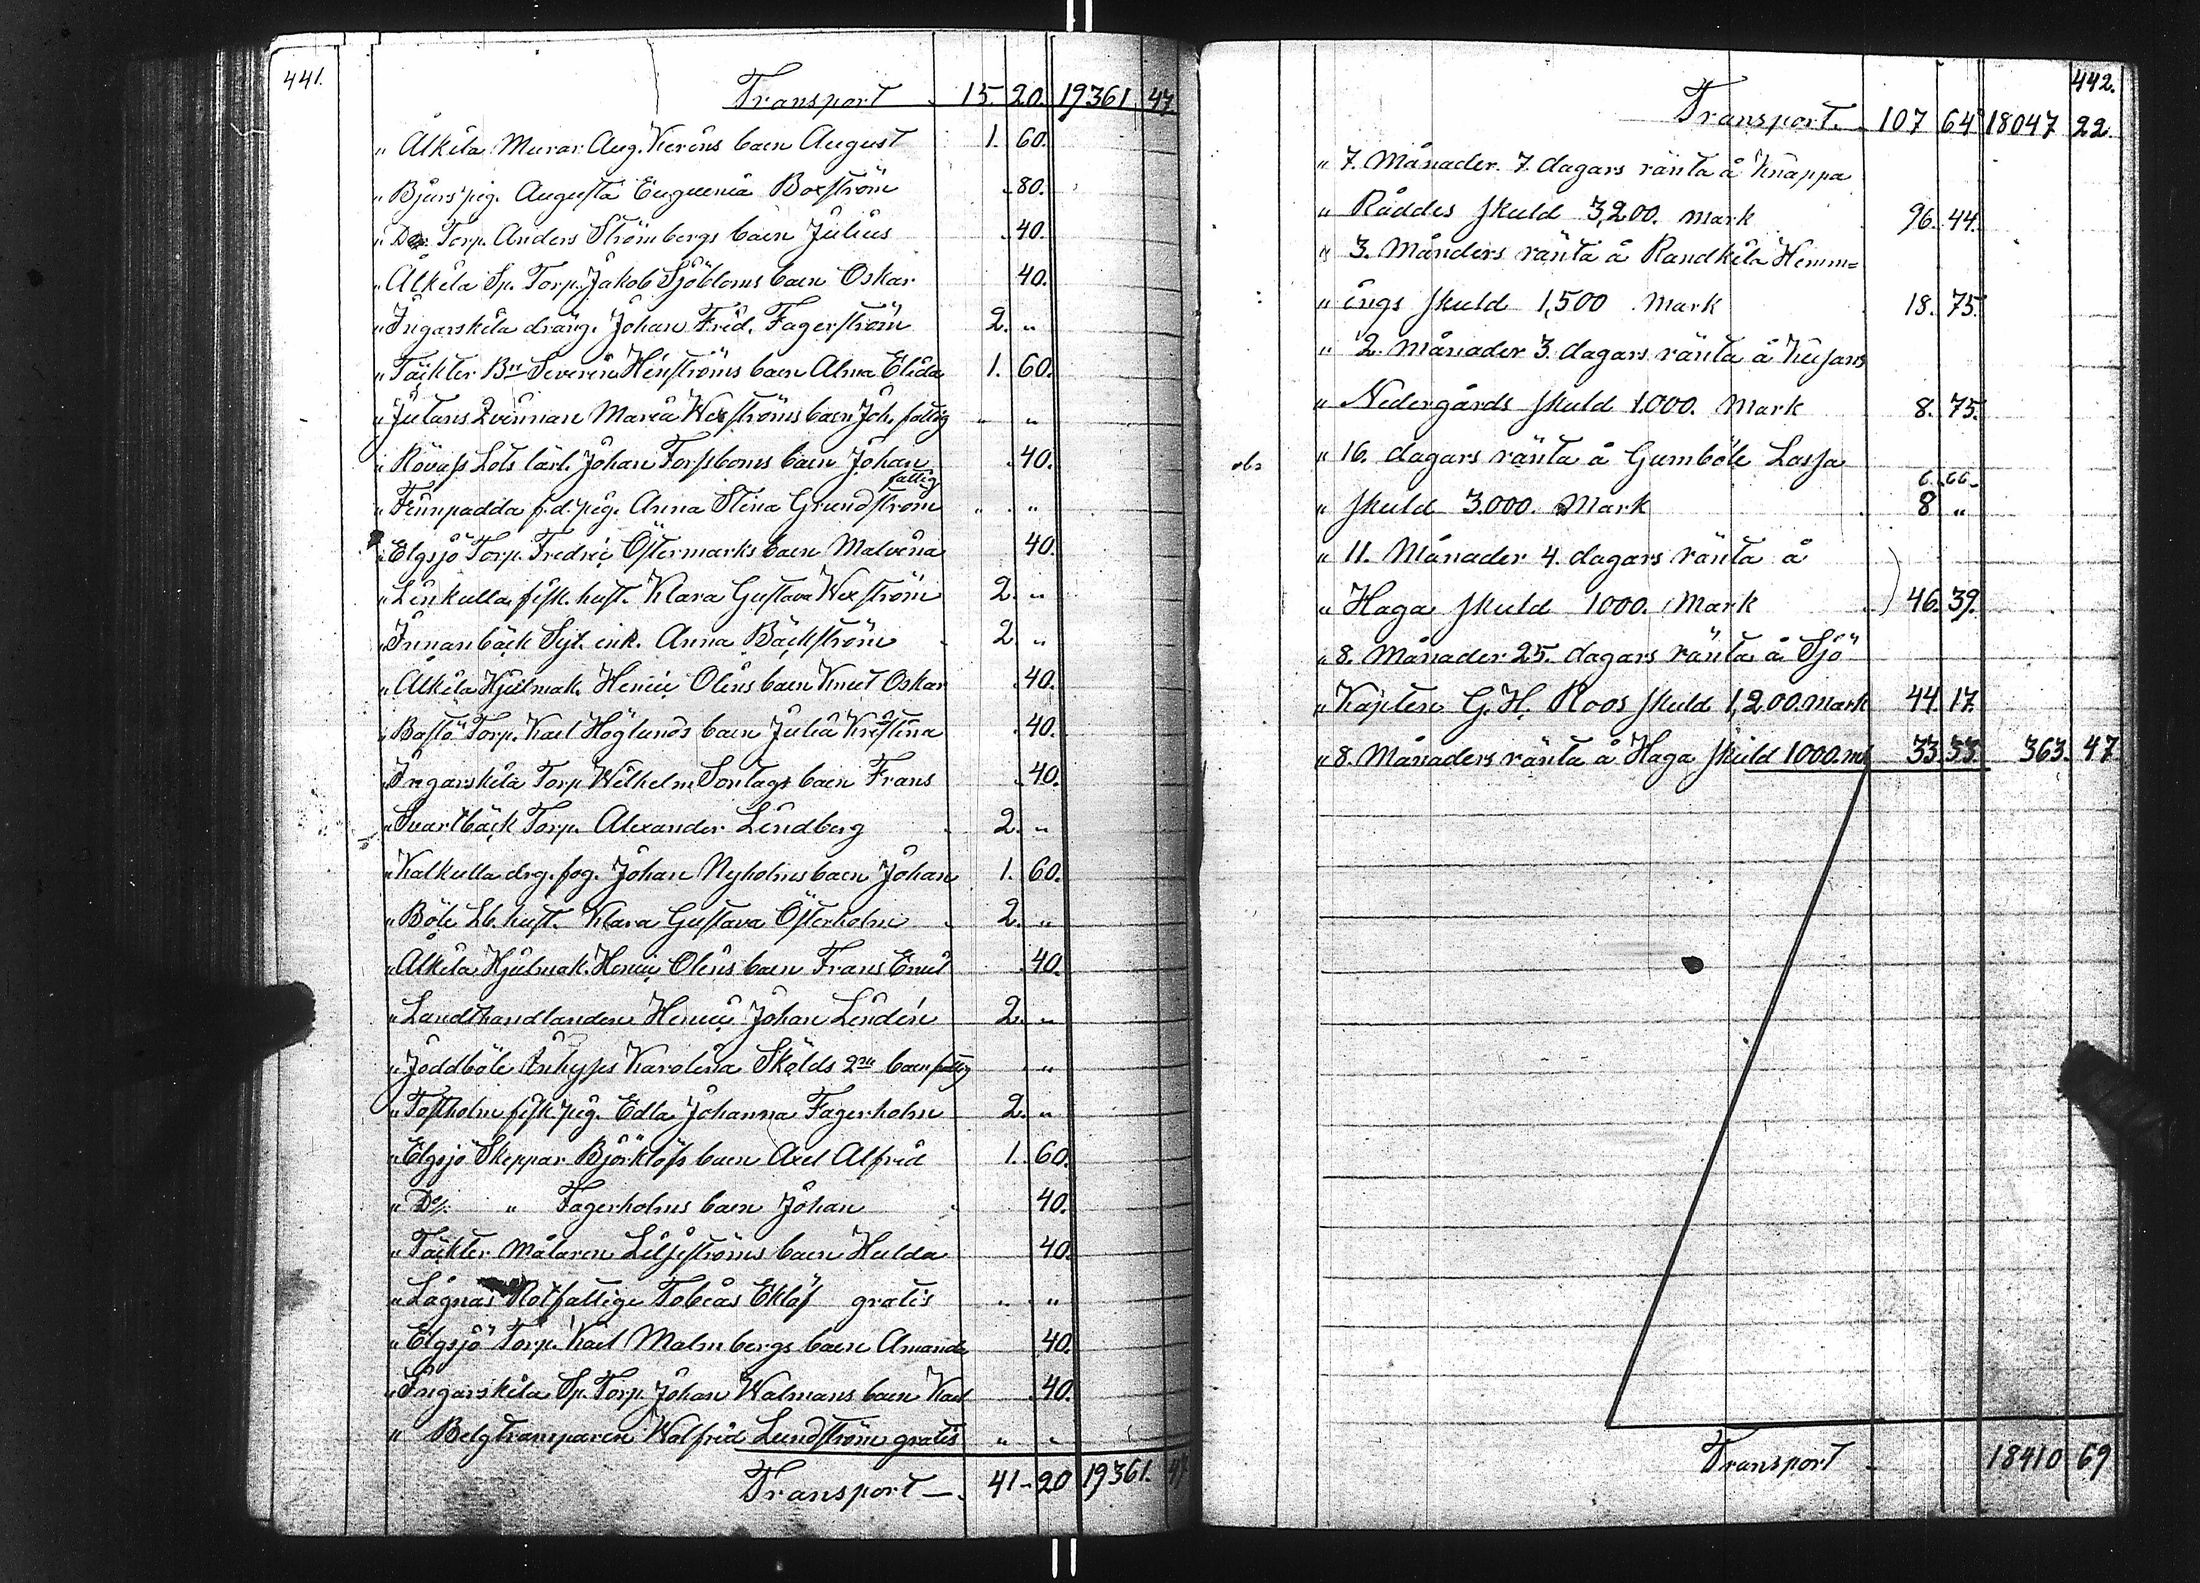 441.
Transport 15. 20. 19361 47
" Ålkila Murar. Aug. Kerens barn August 1. 60.
" Bjurs pig. Augusta Eugenia Boxström 80.
" Do Torp. Anders Strömbergs barn Julius 40.
" Ålkila Sp. Torp. Jakob Sjöbloms barn Oskar 40.
" Ingarskila dräng. Johan Fred. Fagerström 2. "
" Täkter Bn Severin Henströms barn Alma Elida 1. 60.
" Jutans Qvinnan Maria Wexströms barn Joh. fattig " "
" Rövass Lots lärl. Johan Forsboms barn Johan 40.
" Finnpadda f.d. pig. Anna Stina Grundström fattig " "
" Elgsjö Torp. Fredric Östermarks barn Malvina 40.
" Linkulla fisk. hust. Klara Gustava Wexström 2. "
" Innanbäck Syt. enk. Anna Bäckström 2. "
" Ålkila Hjulmak. Henric Olins barn Knut Oskar 40.
" Bastö Torp. Karl Höglunds barn Julia Kristina 40.
" Ingarskila Torp. Wilhelm Sontags barn Frans 40.
" Svartbäck Torp. Alexander Lindberg 2. "
" Kalkulla drg. fog. Johan Nyholms barn Johan 1. 60.
" Böle Lb. hust. Klara Gustava Österholm 2. "
" Ålkila Hjulmak. Henric Olins barn Frans Emil 40.
" Landthandlanden Henric Johan Lindén 2. "
" Joddböle Inhyses Karolina Skölds 2ne barn fattig "
" Tostholm fisk. pig. Edla Johanna Fagerholm 2. "
" Elgsjö Skeppar Björklöfs barn Axel Alfrid 1. 60.
" Do " Fagerholms barn Johan 40.
" Täkter Målaren Liljeströms barn Hulda 40.
" Lågnäs Rotfattige Tobias Eklöf gratis " "
" Elgsjö Torp. Karl Malmbergs barn Amanda 40.
" Ingarskila Sp. Torp. Johan Walmans barn Karl 40.
" Belgtramparen Walfrid Lundström gratis " "
Transport 41 20 19361. 47
442.
Transport. 107 64 18047 22
" 7. Månader. 7. dagars ränta å Knappa
" Råddes skuld 3,200. mark 96. 44.
" 3. Månders ränta å Randkila Hemm=
" ings skuld 1,500 Mark 18. 75.
" 2. Månader 3. dagars ränta å
" Nedergårds skuld 1.000. Mark 8. 75.
" 16. dagars ränta å Gumböle Lassa
6. 66
" skuld 3.000. Mark 8 "
" 11. Månader 4. dagars ränta å
" Haga skuld 1000. Mark 46. 39.
" 8. Månader 25. dagars ränta å Sjö
" Kapten G. H. Roos skuld 1,200. mark 44. 17.
" 8. Månaders ränta å Haga skuld 1000. mk 33. 33. 363. 47
Transport 18410 69